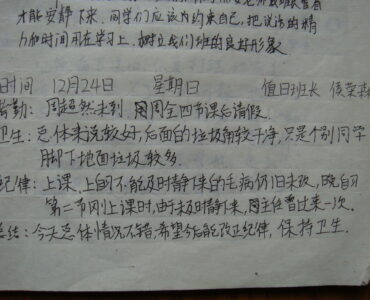 才能安静下来.同学们应该内约束自己,把说话的精
力和时间用在学习上.树立我们班的良好形象
时间 12月24日 星期日 值日班长 侯荣森
考勤:周超然未到.周全四节课后请假.
卫生:总体来说较好,后面的垃圾角较干净,只是个别同学
脚下地面垃圾较多.
纪律:上课.上自习不能及时静下来的毛病仍旧未改,晚自习
第二节刚上课时,由于未及时静下来,周主任曾过来一次.
总结:今天总体情况不错.希望今后能改正纪律,保持卫生.